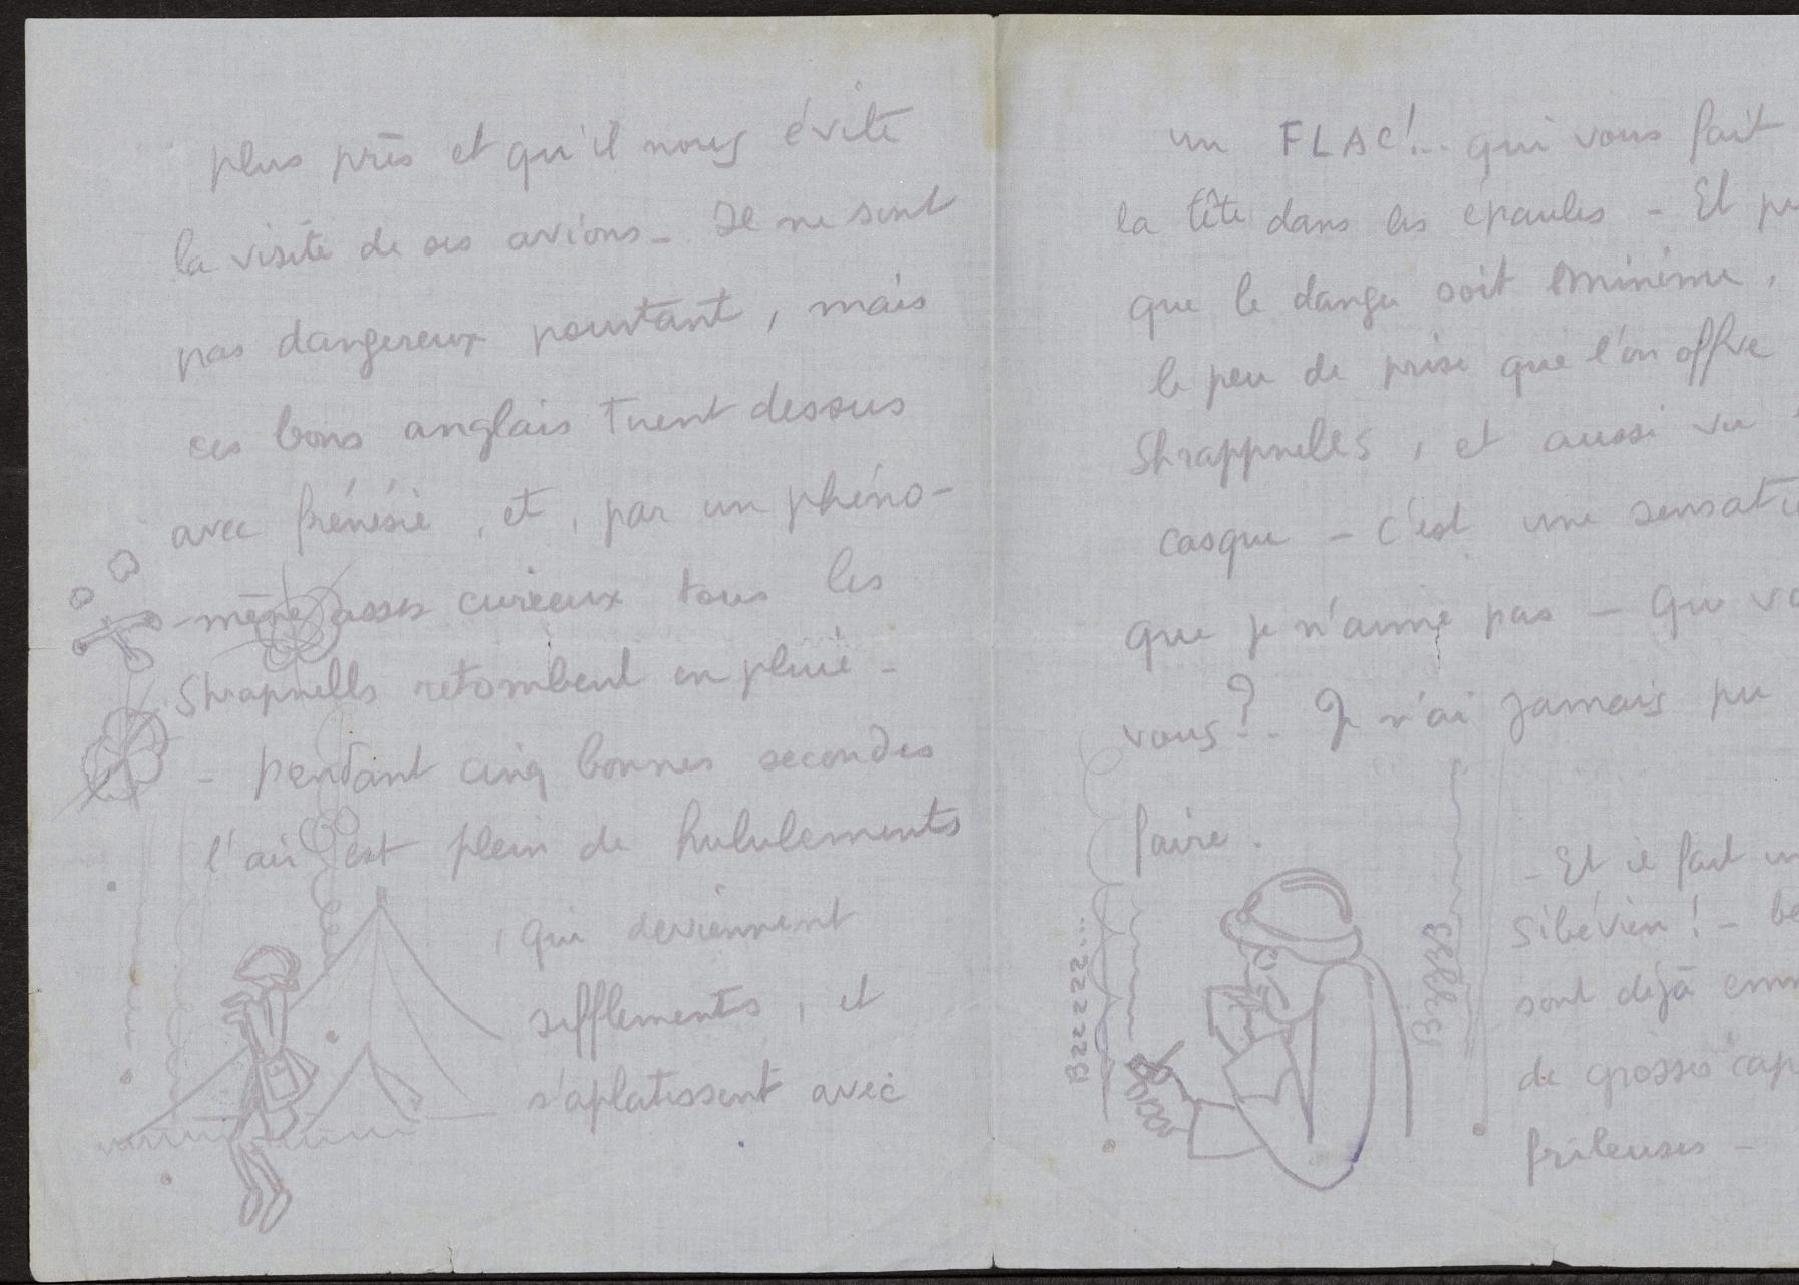 plus près et qu'il nous évite
la visite de ses avions - Il ne sont
pas dangereux pourtant, mais
ces bons anglais tirent dessus
avec frénésie, et, par un phéno-
-mène assez curieux tous les
Shrapnells retombent en pluie -
- pendant cinq bonnes secondes
l'air est plein de hululements
, qui deviennent
sifflements, et
s'aplatissent avec
un FLAC!.. qui vous fait
la tête dans les épaules - Et
que le danger soit minime,
le peu de prise que l'on offre
Shrappnells, et aussi vu
casque - c'est une
que je n'aime pas - Que
vous?.. Je n'ai jamais pu
faire.
BZZZZZZ...
- Et il fait
Sibérien! -
sont déjà
de grosses
frileuses -